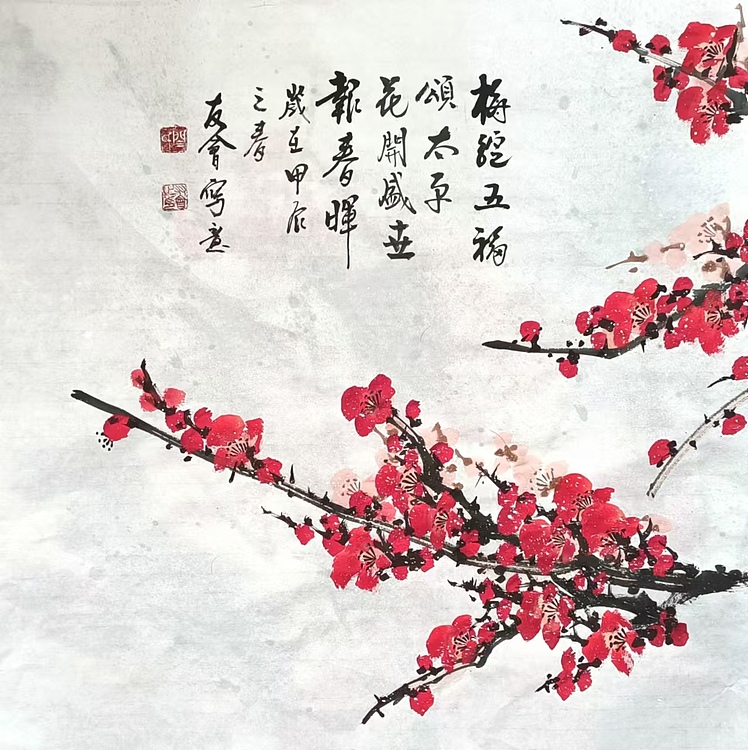 梅綻五福
頌太平
花開盛世
報春暉
歲在甲辰
之春
友會寫意